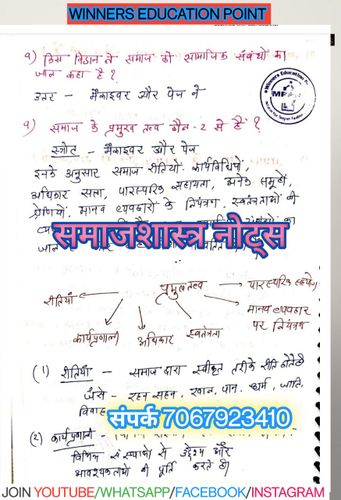 WINNERS EDUCATION POINT
प्र) किस विद्वान ने समाज को सामाजिक संबंधों का
जाल कहा है?
उत्तर - मैकाइवर और पेज ने
प्र) समाज के प्रमुख तत्व कौन-2 से हैं?
स्त्रोत - मैकाइवर और पेज
इनके अनुसार समाज रीतियों, कार्यविधियों,
अधिकार सत्ता, पारस्परिक सहायता, अनेक समूहों,
श्रेणियों, मानव व्यवहारों के नियंत्रण, स्वतंत्रताओं की
समाजशास्त्र नोट्स
प्रमुख तत्व
रीतियाँ
पारस्परिक सहयोग
कार्यप्रणाली
अधिकार
स्वतंत्रता
मानव व्यवहार
पर नियंत्रण
(1) रीतियाँ - समाज द्वारा स्वीकृत तरीके रीति होते हैं
जैसे - रहन सहन, खान, पान, धर्म, जाति,
विवाह
संपर्क 7067923410
(2) कार्यप्रणाली -
विभिन्न संस्थाओं से उद्देश्य और
आवश्यकताओं की पूर्ति करते हैं।
JOIN YOUTUBE/WHATSAPP/FACEBOOK/INSTAGRAM